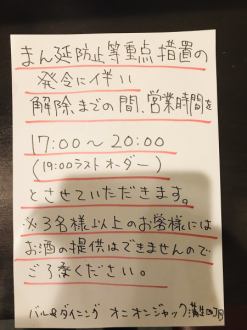 まん延防止等重点措置の
発令に伴い
解除までの間、営業時間を
17:00～20:00
(19:00ラストオーダー)
とさせていただきます。
※3名様以上のお客様には
お酒の提供はできませんので
ご了承ください。
バル&ダイニング オニオンジャック 蒲生四丁目